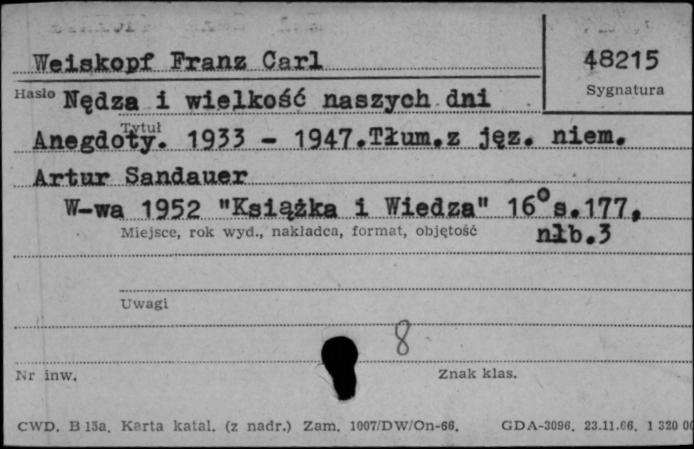 Weiskopf Franz Carl
48215
Hasło
Sygnatura
Nędza i wielkość naszych dni
Tytuł
Anegdoty. 1933 - 1947.Tłum.z jęz. niem.
Artur Sandauer
W-wa 1952 "Książka i Wiedza" 16° s.177,
Miejsce, rok wyd., nakładca, format, objętość
nlb.3
Uwagi
8
Nr inw.
Znak klas.
CWD. B 15a. Karta katal. (z nadr.) Zam. 1007/DW/On-66. GDA-3096. 23.11.66. 1 320 00